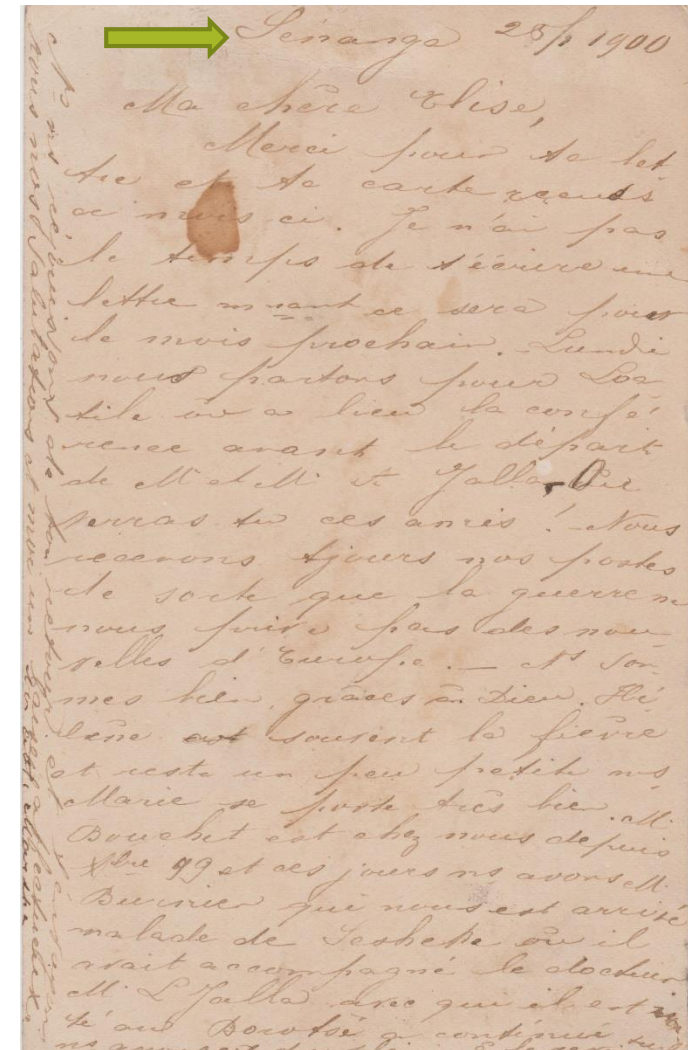 Senanga 25/1 1900
Ma chère Elise,
Merci pour ta let
tre et ta carte reçues
ce mois ci. Je n'ai pas
le temps de t'écrire une
lettre ce sera pour
le mois prochain. - Lundi
nous partons pour Loa
tile où a lieu la confé
rence avant le départ
de M et M. Jalla.
verras tu ces amis ! - Nous
recevons tjours nos postes
de sorte que la guerre ne
nous prive pas des nou
velles d'Europe. - Ns som
mes bien, grâces à Dieu. Hé
lène a souvent la fièvre
et reste un peu petite ms
Marie se porte très bien. M.
Bouchet est chez nous depuis
Xbre 99 et ces jours ns avons M.
Burnier qui nous est arrivé
malade de Sesheke où il
avait accompagné le docteur
M. L. Jalla avec qui il est
té au Bowtsé continué
ns
Ns ns réjouissons de ton retour et
nous nos Salutations et moi un